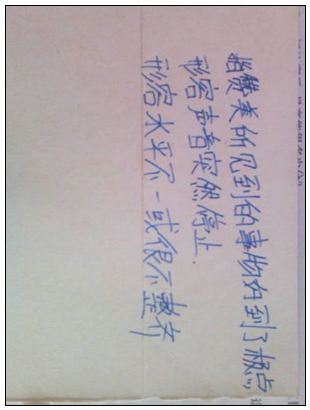 指赞美所见到的事物好到了极点
形容声音突然停止.
形容水平不一或很不整齐